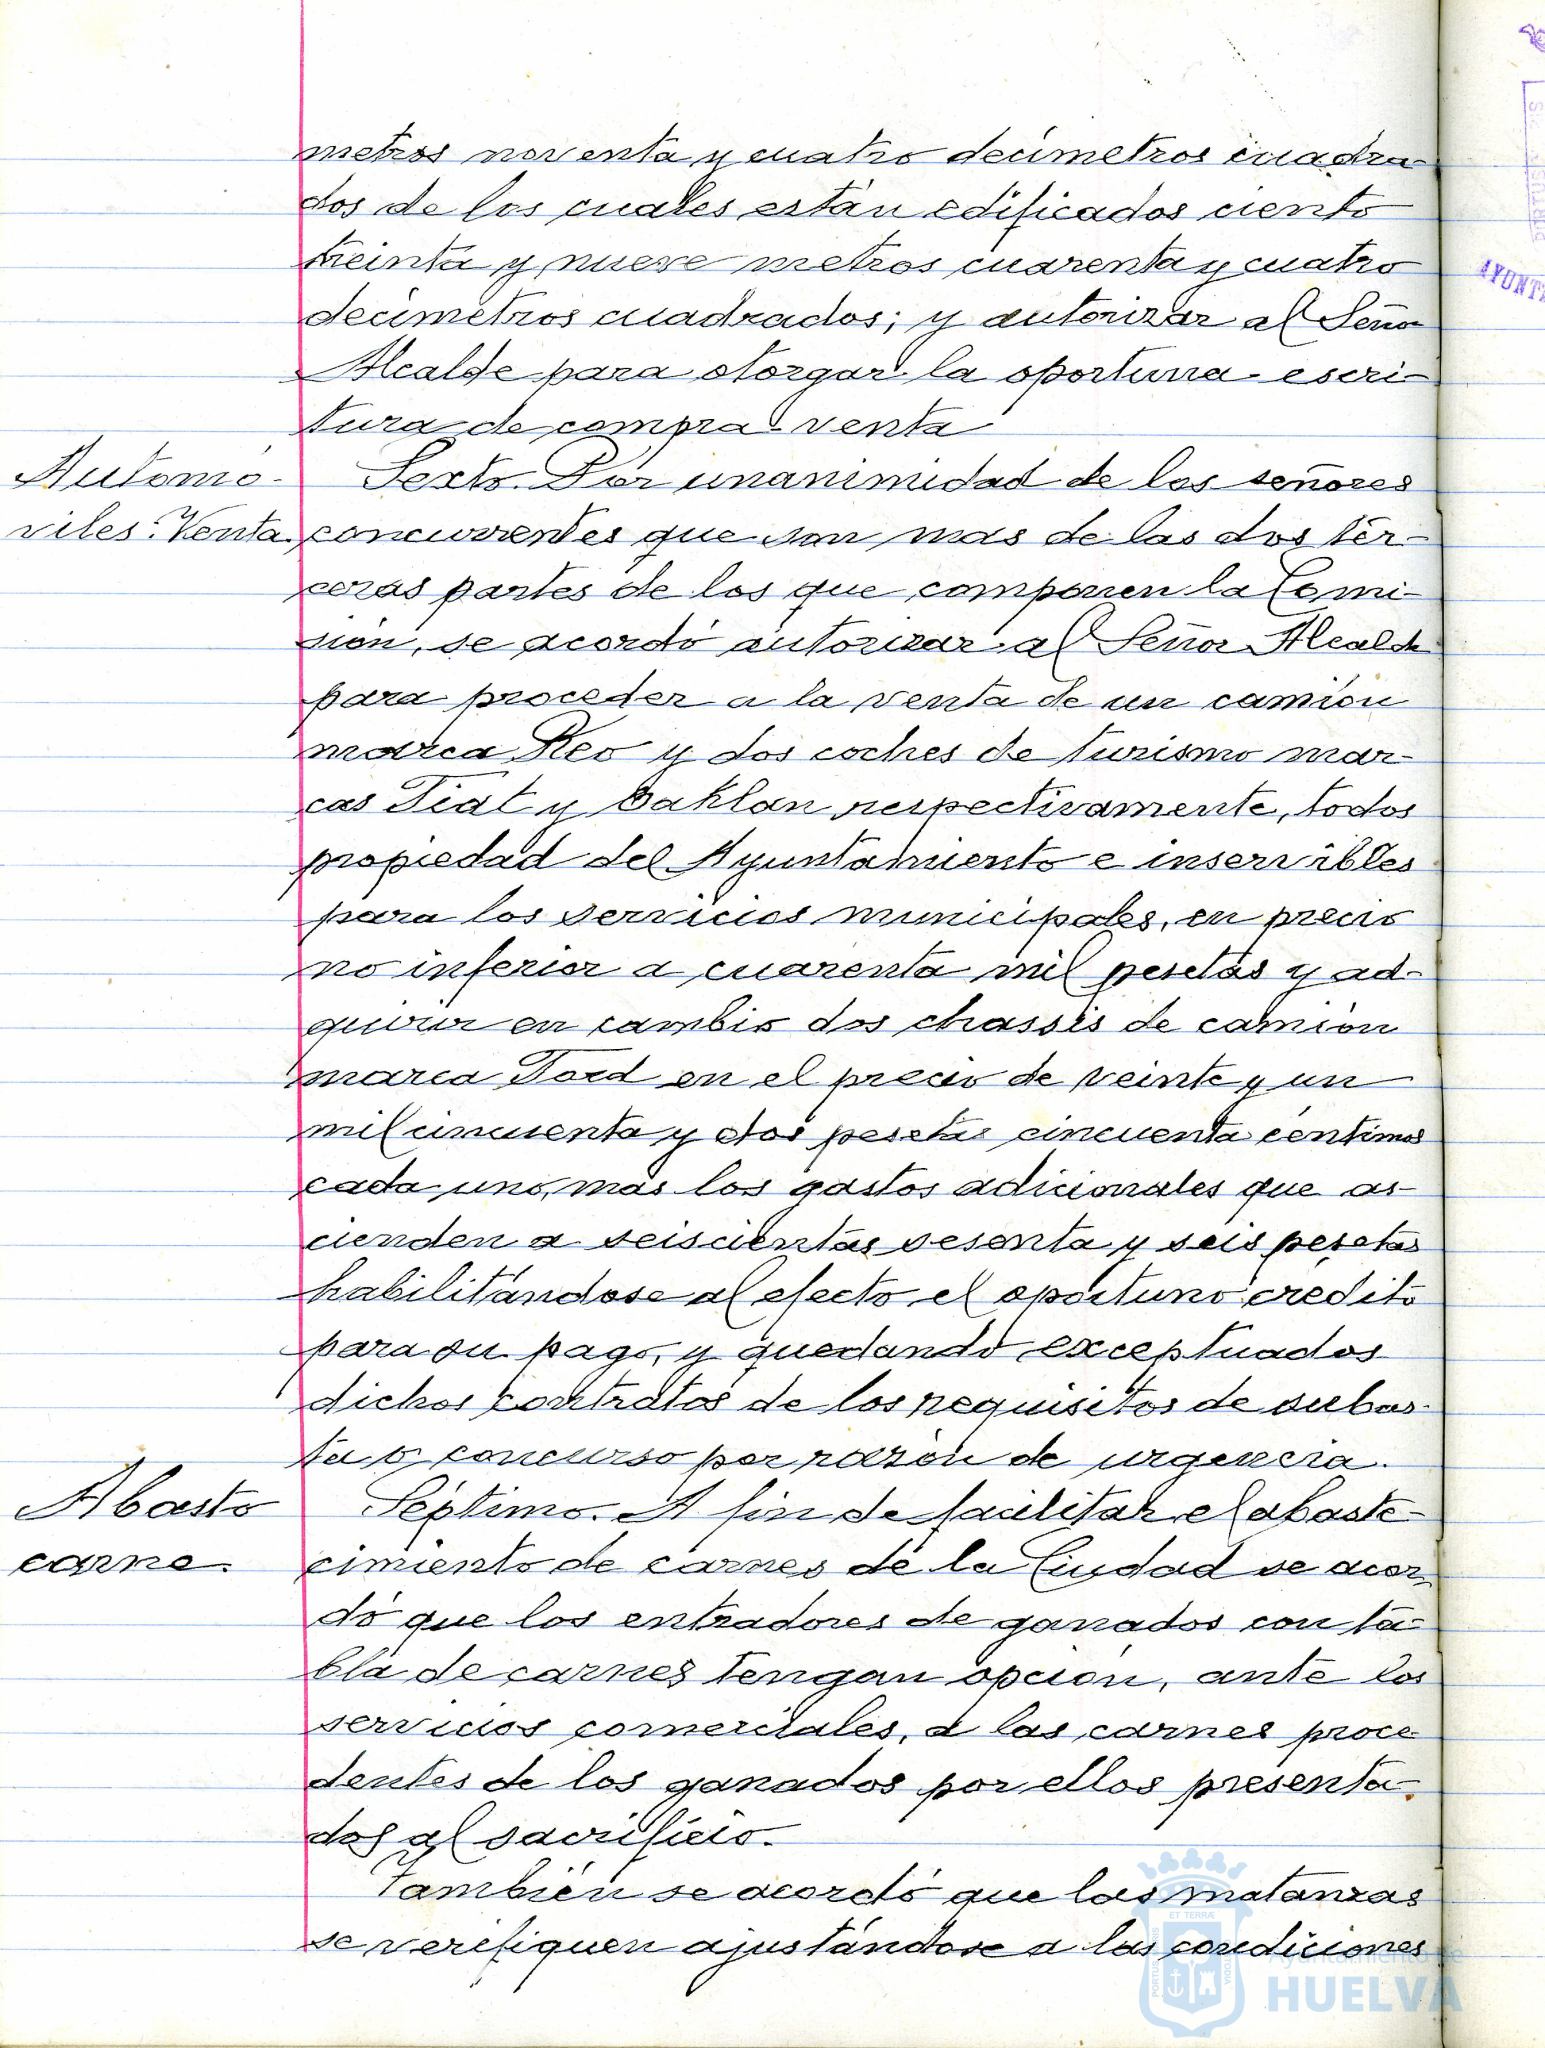 metros noventa y cuatro decimetros cuadra-
dos de los cuales están edificados ciento
treinta y nueve metros cuarenta y cuatro
decimetros cuadrados; y autorizar al Señor
Alcalde para otorgar la oportuna escri-
tura de compra-venta
Automó-
viles: Venta.
Sexto. Por unanimidad de los señores
concurrentes que son mas de las dos ter-
ceras partes de los que componen la Comi-
sión, se acordó autorizar al Señor Alcalde
para proceder a la venta de un camión
marca Reo y dos coches de turismo mar-
cas Fiat y Oaklan respectivamente, todos
propiedad del Ayuntamiento e inservibles
para los servicios municipales, en precio
no inferior a cuarenta mil pesetas y ad-
quirir en cambio dos chassis de camión
marca Ford en el precio de veinte y un
mil cincuenta y dos pesetas cincuenta centimos
cada uno, mas los gastos adicionales que as-
cienden a seiscientas sesenta y seis pesetas
habilitándose al efecto el oportuno credito
para su pago, y quedando exceptuados
dichos contratos de los requisitos de subas-
ta o concurso por razón de urgencia.
Abasto
carne.
Séptimo. A fin de facilitar el abaste-
cimiento de carnes de la Ciudad se acor-
dó que los entradores de ganados con ta-
bla de carnes tengan opción, ante los
servicios comerciales, a las carnes proce-
dentes de los ganados por ellos presenta-
dos al sacrificio.
También se acordó que las matanzas
se verifiquen ajustándose a las condiciones
AYUNT
Ayuntamiento de
HUELVA